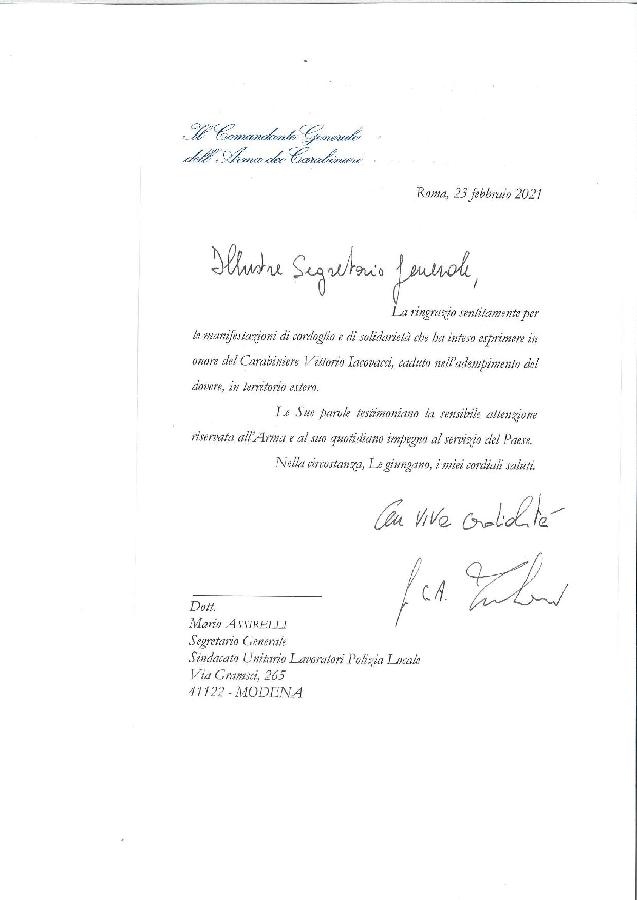 Il Comandante Generale
dell'Arma dei Carabinieri
Roma, 23 febbraio 2021
Illustre Segretario Generale,
La ringrazio sentitamente per
le manifestazioni di cordoglio e di solidarietà che ha inteso esprimere in
onore del Carabiniere Vittorio Iacovacci, caduto nell'adempimento del
dovere, in territorio estero.
Le Sue parole testimoniano la sensibile attenzione
riservata all'Arma e al suo quotidiano impegno al servizio del Paese.
Nella circostanza, Le giungano, i miei cordiali saluti.
Con viva cordialità
Dott.
Mario ASSIRELLI
Segretario Generale
Sindacato Unitario Lavoratori Polizia Locale
Via Gramsci, 265
41122 - MODENA